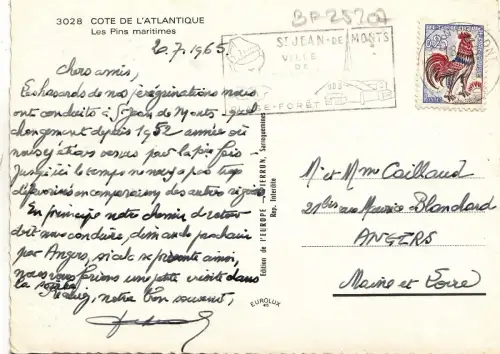 3028 COTE DE L'ATLANTIQUE
Les Pins maritimes
BP-25207
20.7.1965.
Chers amis,
Les hasards de nos pérégrinations nous
ont conduits à St Jean de Monts - quel
changement depuis 1952 année où
nous y étions venus pour la 1re fois
Jusqu'ici le temps ne nous a pas trop
défavorisés en comparaison des autres régions
En principe notre chemin de retour
doit nous conduire, dimanche prochain
par Angers, si cela se présente ainsi,
nous vous ferions une petite visite dans
la soirée
Recevez, notre bon souvenir,
ST JEAN-DE-MONTS
VILLE
DE
PLAGE-FORÊT
0,25
Edition de l'EUROPE - PIERRON, Sarreguemines
Rep. Interdite
EUROLUX
Mr et Mme Caillaud
21 bis rue Maurice Blanchard
ANGERS
Maine et Loire